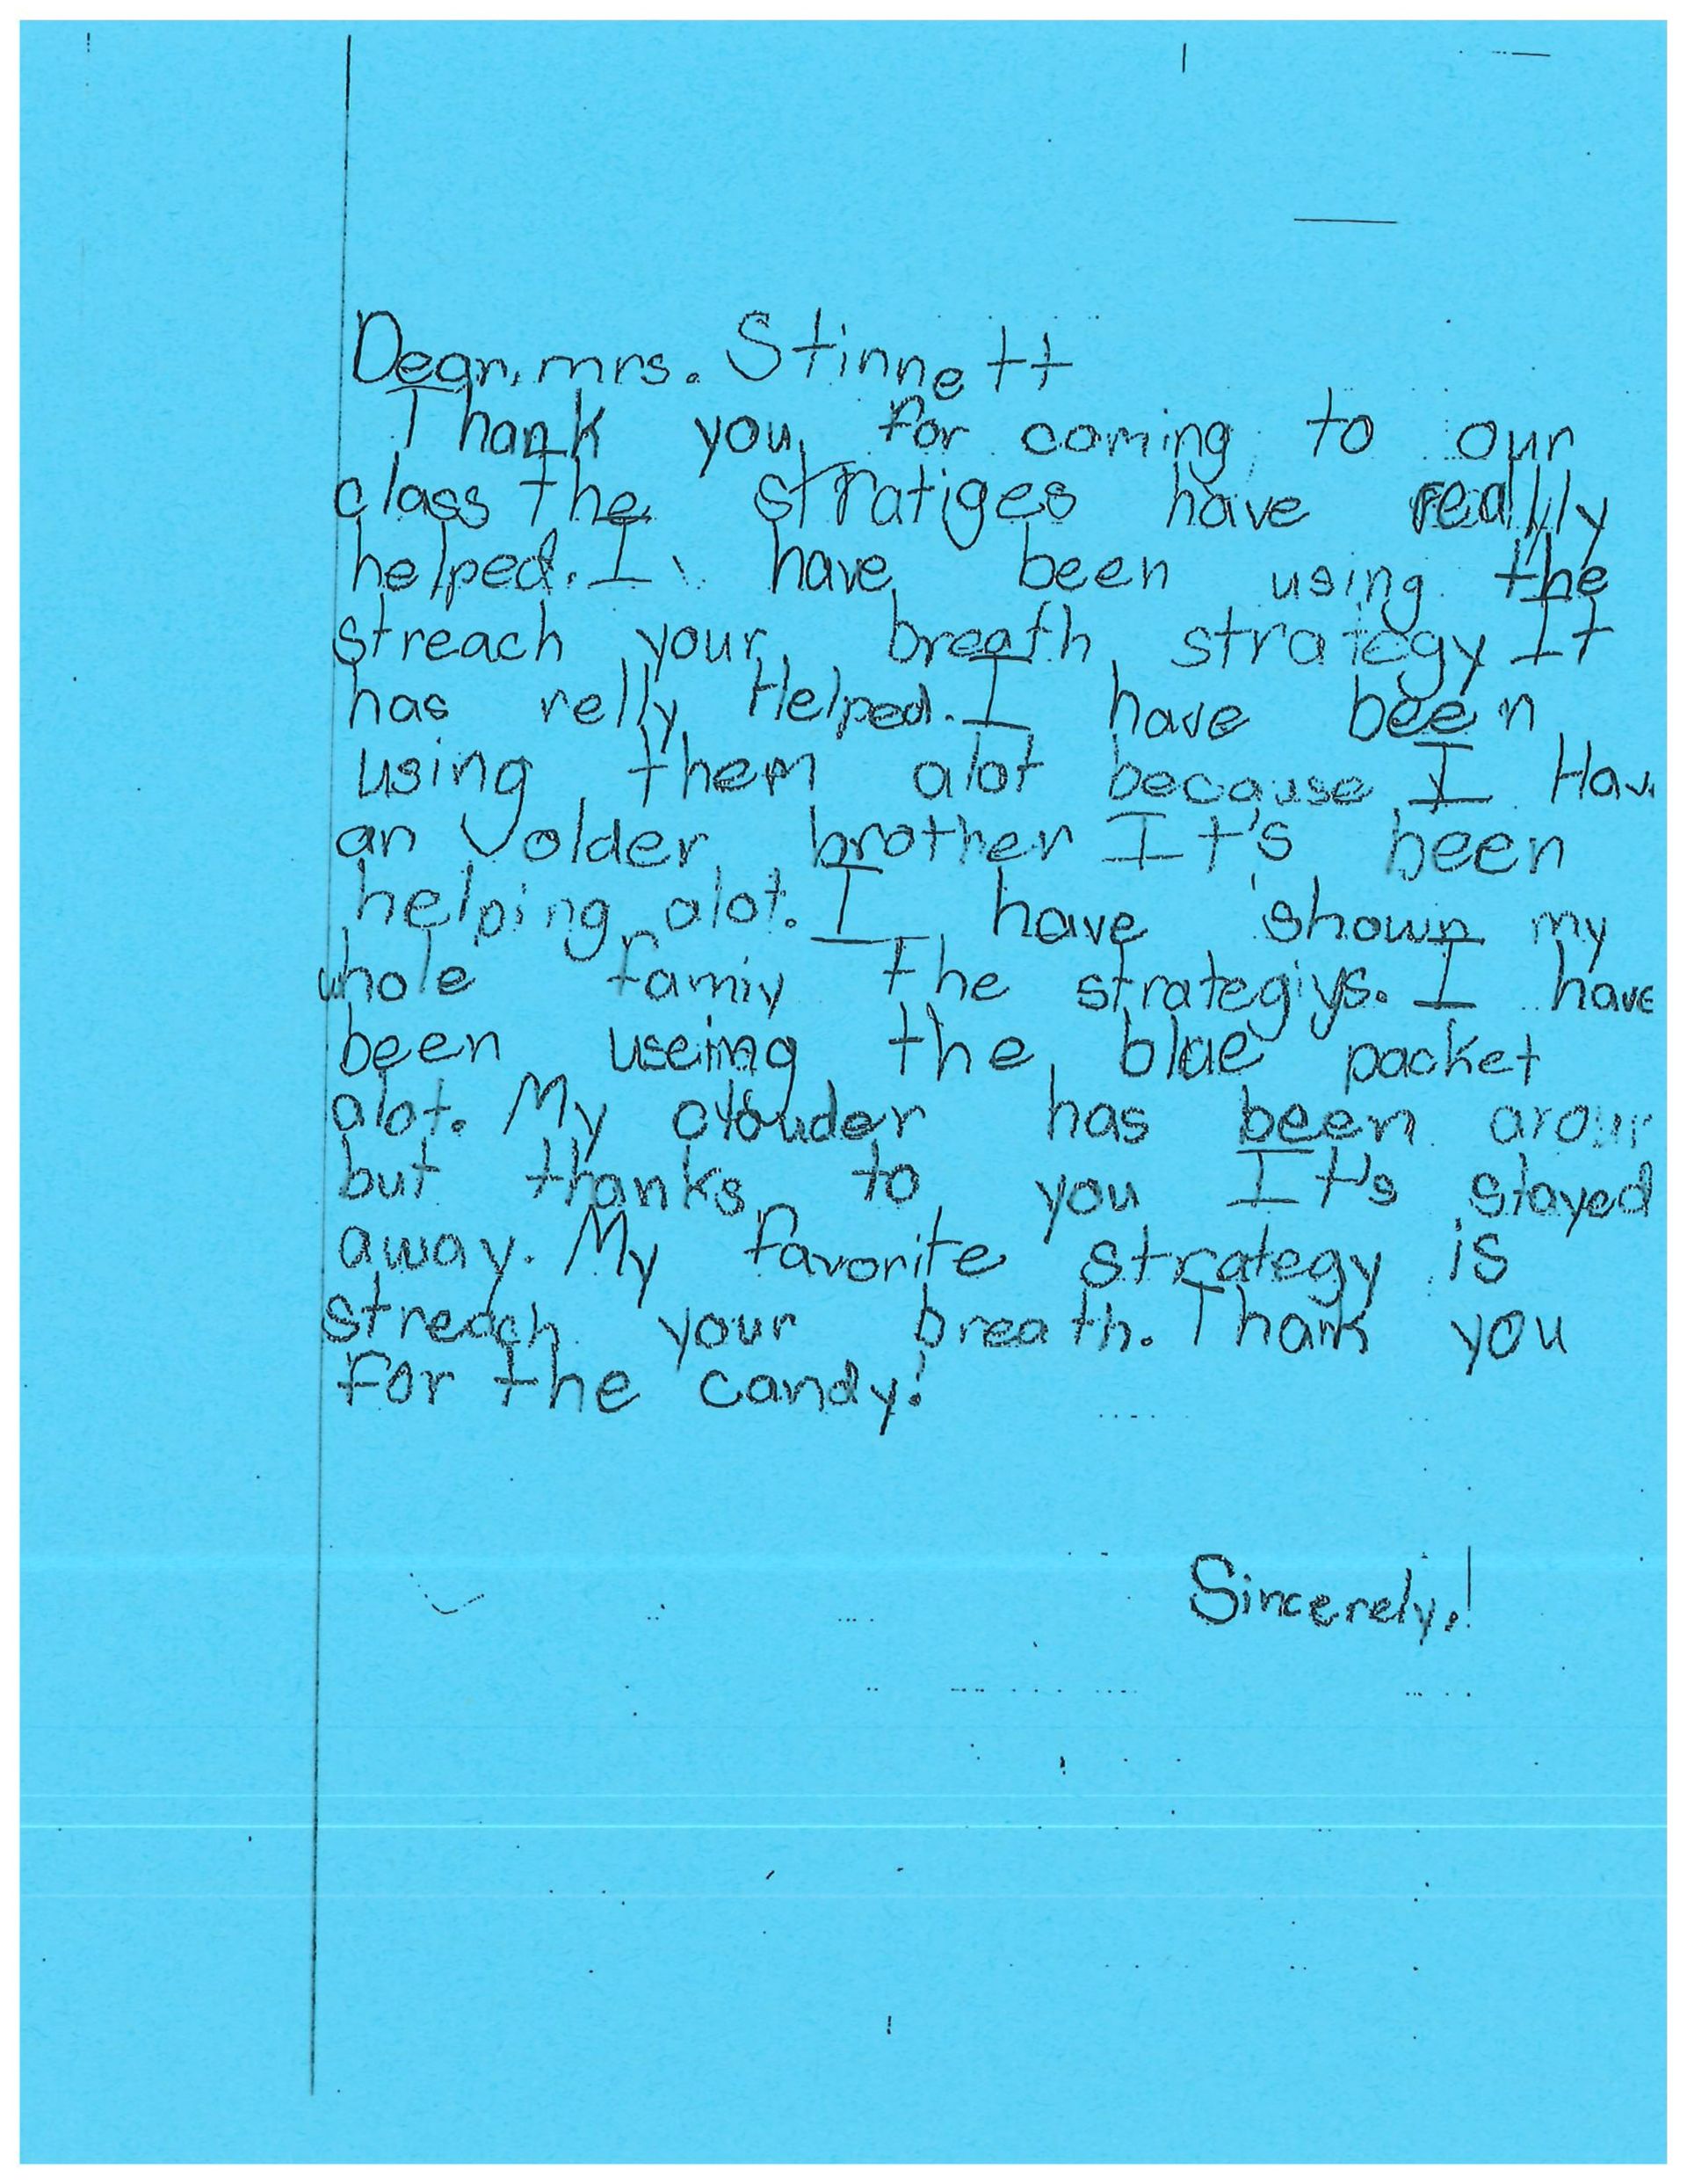 Dear, mrs. Stinnett
Thank you for coming to our
class the stratiges have really
helped. I have been using the
streach your breath strategy It
has relly Helped. I have been
using them alot because I Hav
an older brother It's been
helping alot. I have shown my
whole famiy the strategiys. I have
been useing the blue packet
alot. My has been aroun
but thanks to you It's stayed
away. My favorite strategy is
streach your breath. Thank you
for the candy!
Sincerely,!